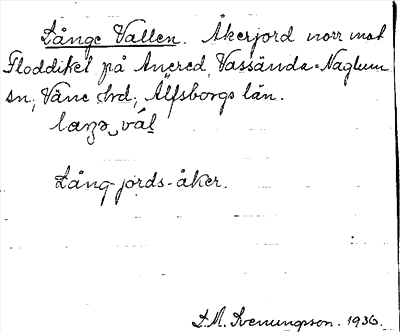 Långe Vallen. Åkerjord norr mot
Floddiket på Anered, Vassända-Naglum
sn; Väne hrd; Älfsborgs län.
laŋə vál
Lång-jords-åker.
D.M. Svenungsson. 1936.